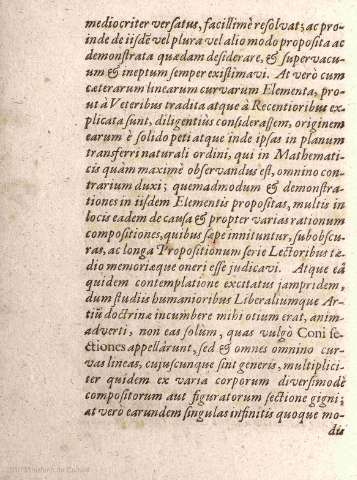 mediocriter versatus, facillimè resolvat; ac pro-
inde de iisdē vel plura vel alio modo proposita ac
demonstrata quædam desiderare, & supervacu-
um & ineptum semper existimavi. At verò cum
cæterarum linearum curvarum Elementa, pro-
ut à Veteribus tradita atque à Recentioribus ex-
plicata sunt, diligentiùs considerassem, originem
earum è solido peti atque inde ipsas in planum
transferri naturali ordini, qui in Mathemati-
cis quàm maximè observandus est, omnino con-
trarium duxi; quemadmodum & demonstra-
tiones in iisdem Elementis propositas, multis in
locis eadem de causa & propter varias rationum
compositiones, quibus sæpe innituntur, subobscu-
ras, ac longa Propositionum serie Lectoribus tæ-
dio memoriæque oneri esse judicavi. Atque eâ
quidem contemplatione excitatus jampridem,
dum studiis humanioribus Liberaliumque Ar-
tiū doctrinæ incumbere mihi otium erat, anim-
adverti, non eas solùm, quas vulgò Coni se-
ctiones appellârunt, sed & omnes omnino cur-
vas lineas, cujuscunque sint generis, multiplici-
ter quidem ex varia corporum diversimodè
compositorum aut figuratorum sectione gigni;
at verò earundem singulas infinitis quoque mo-
dis